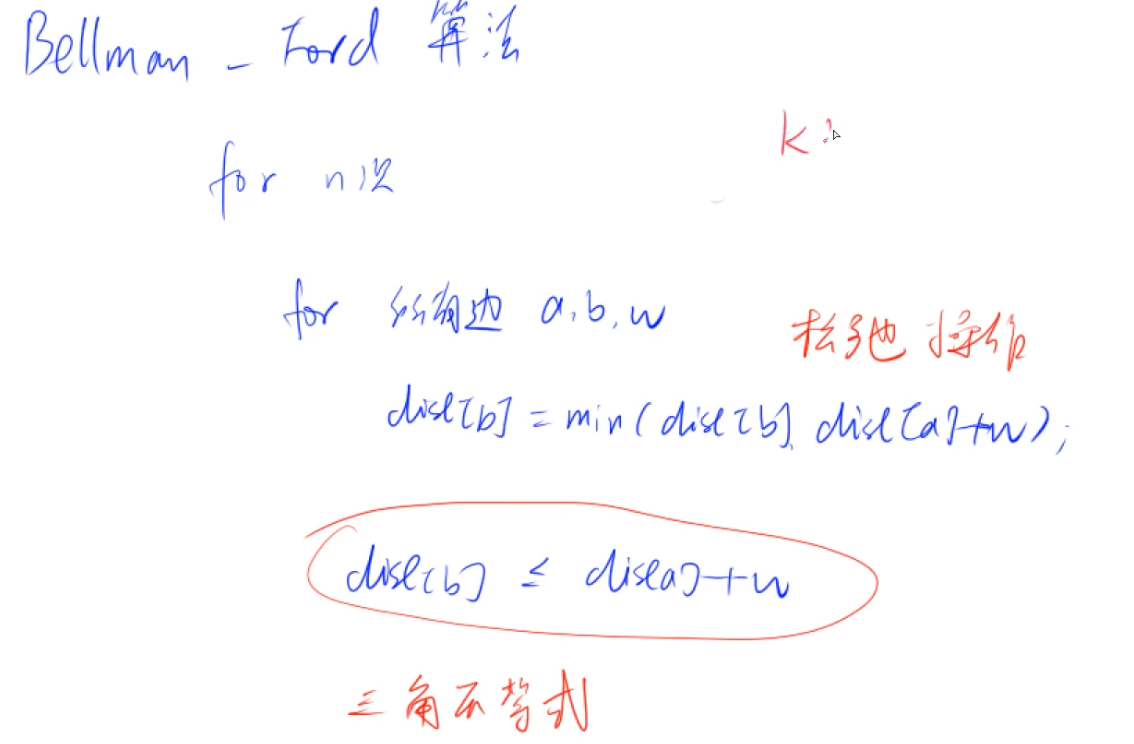 Bellman - Ford 算法
k
for n次
for 所有边 a,b,w
松弛操作
dist[b] = min(dist[b], dist[a]+w);
dist[b] ≤ dist[a]+w
三角不等式